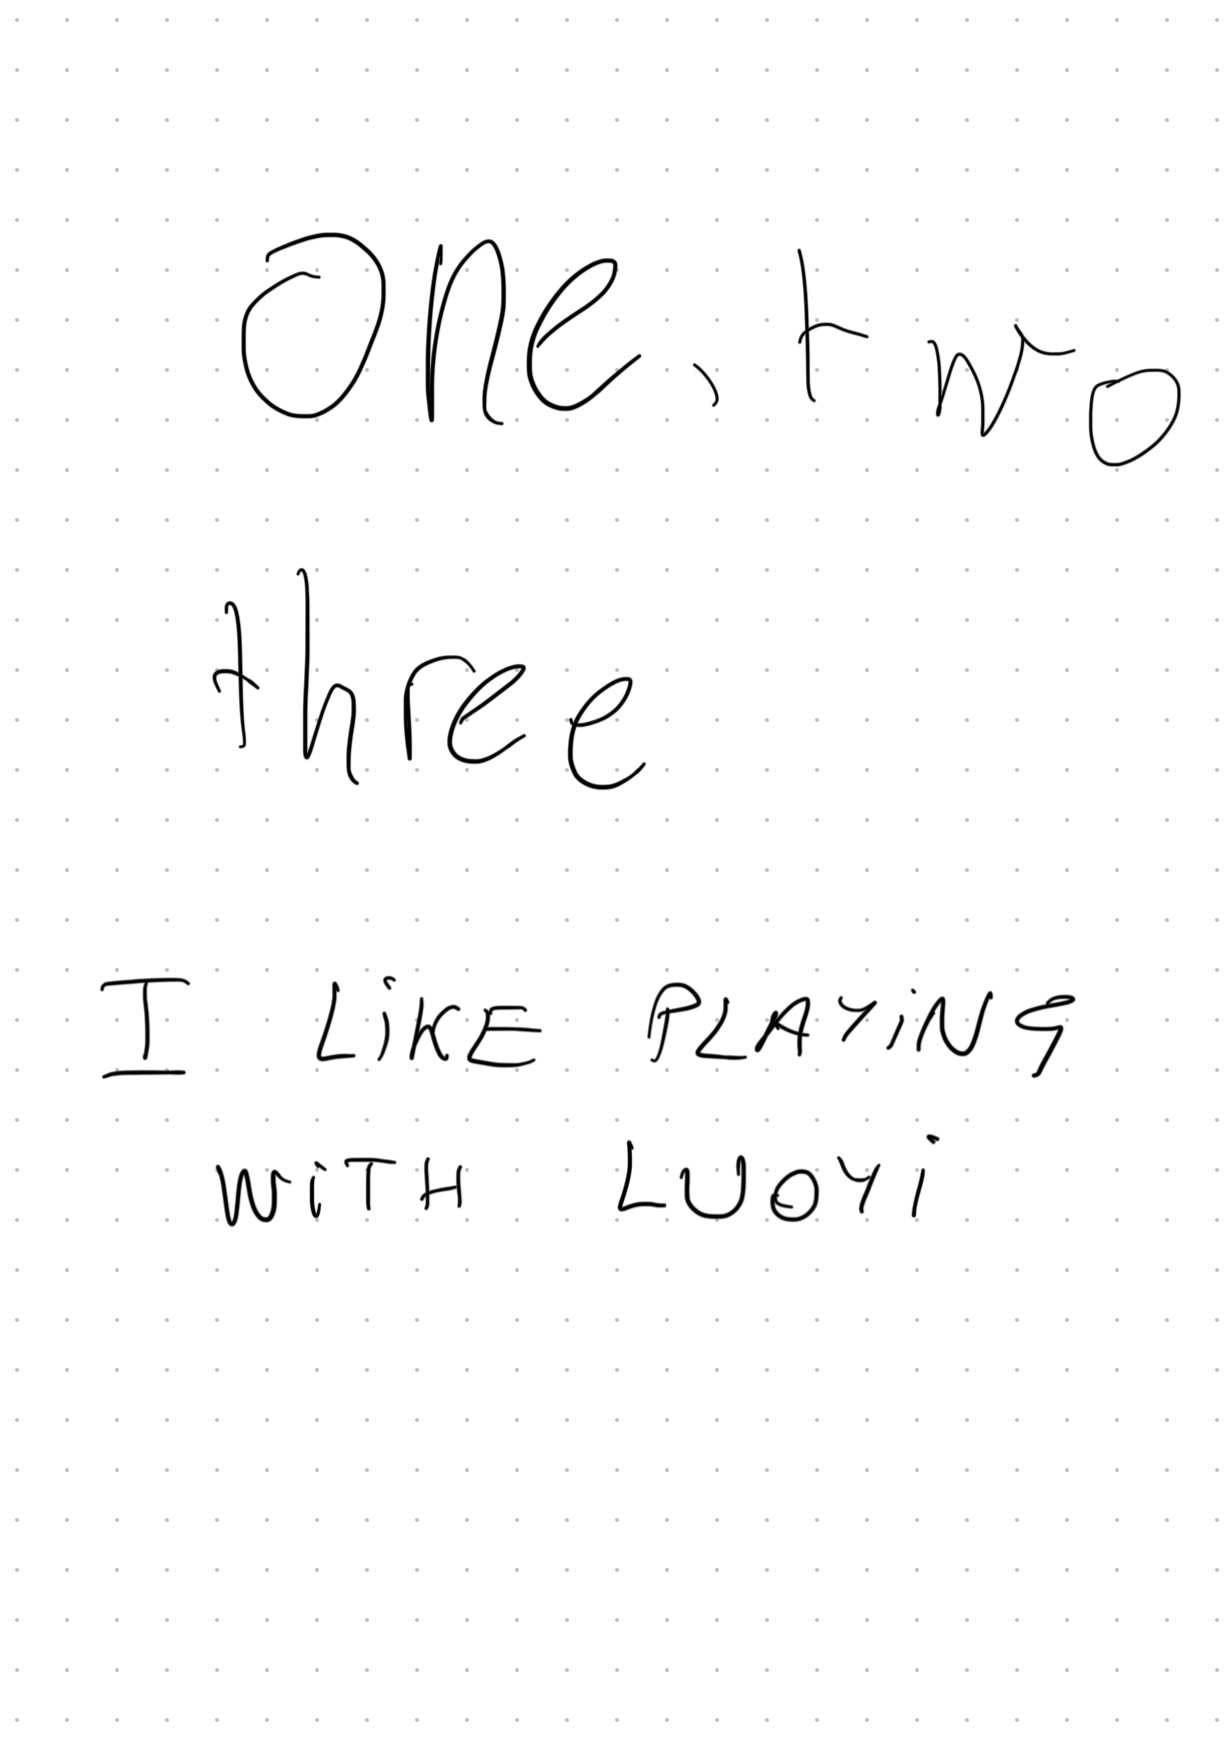 one, two
three
I LiKE PLAYiNG
WiTH LUOYi